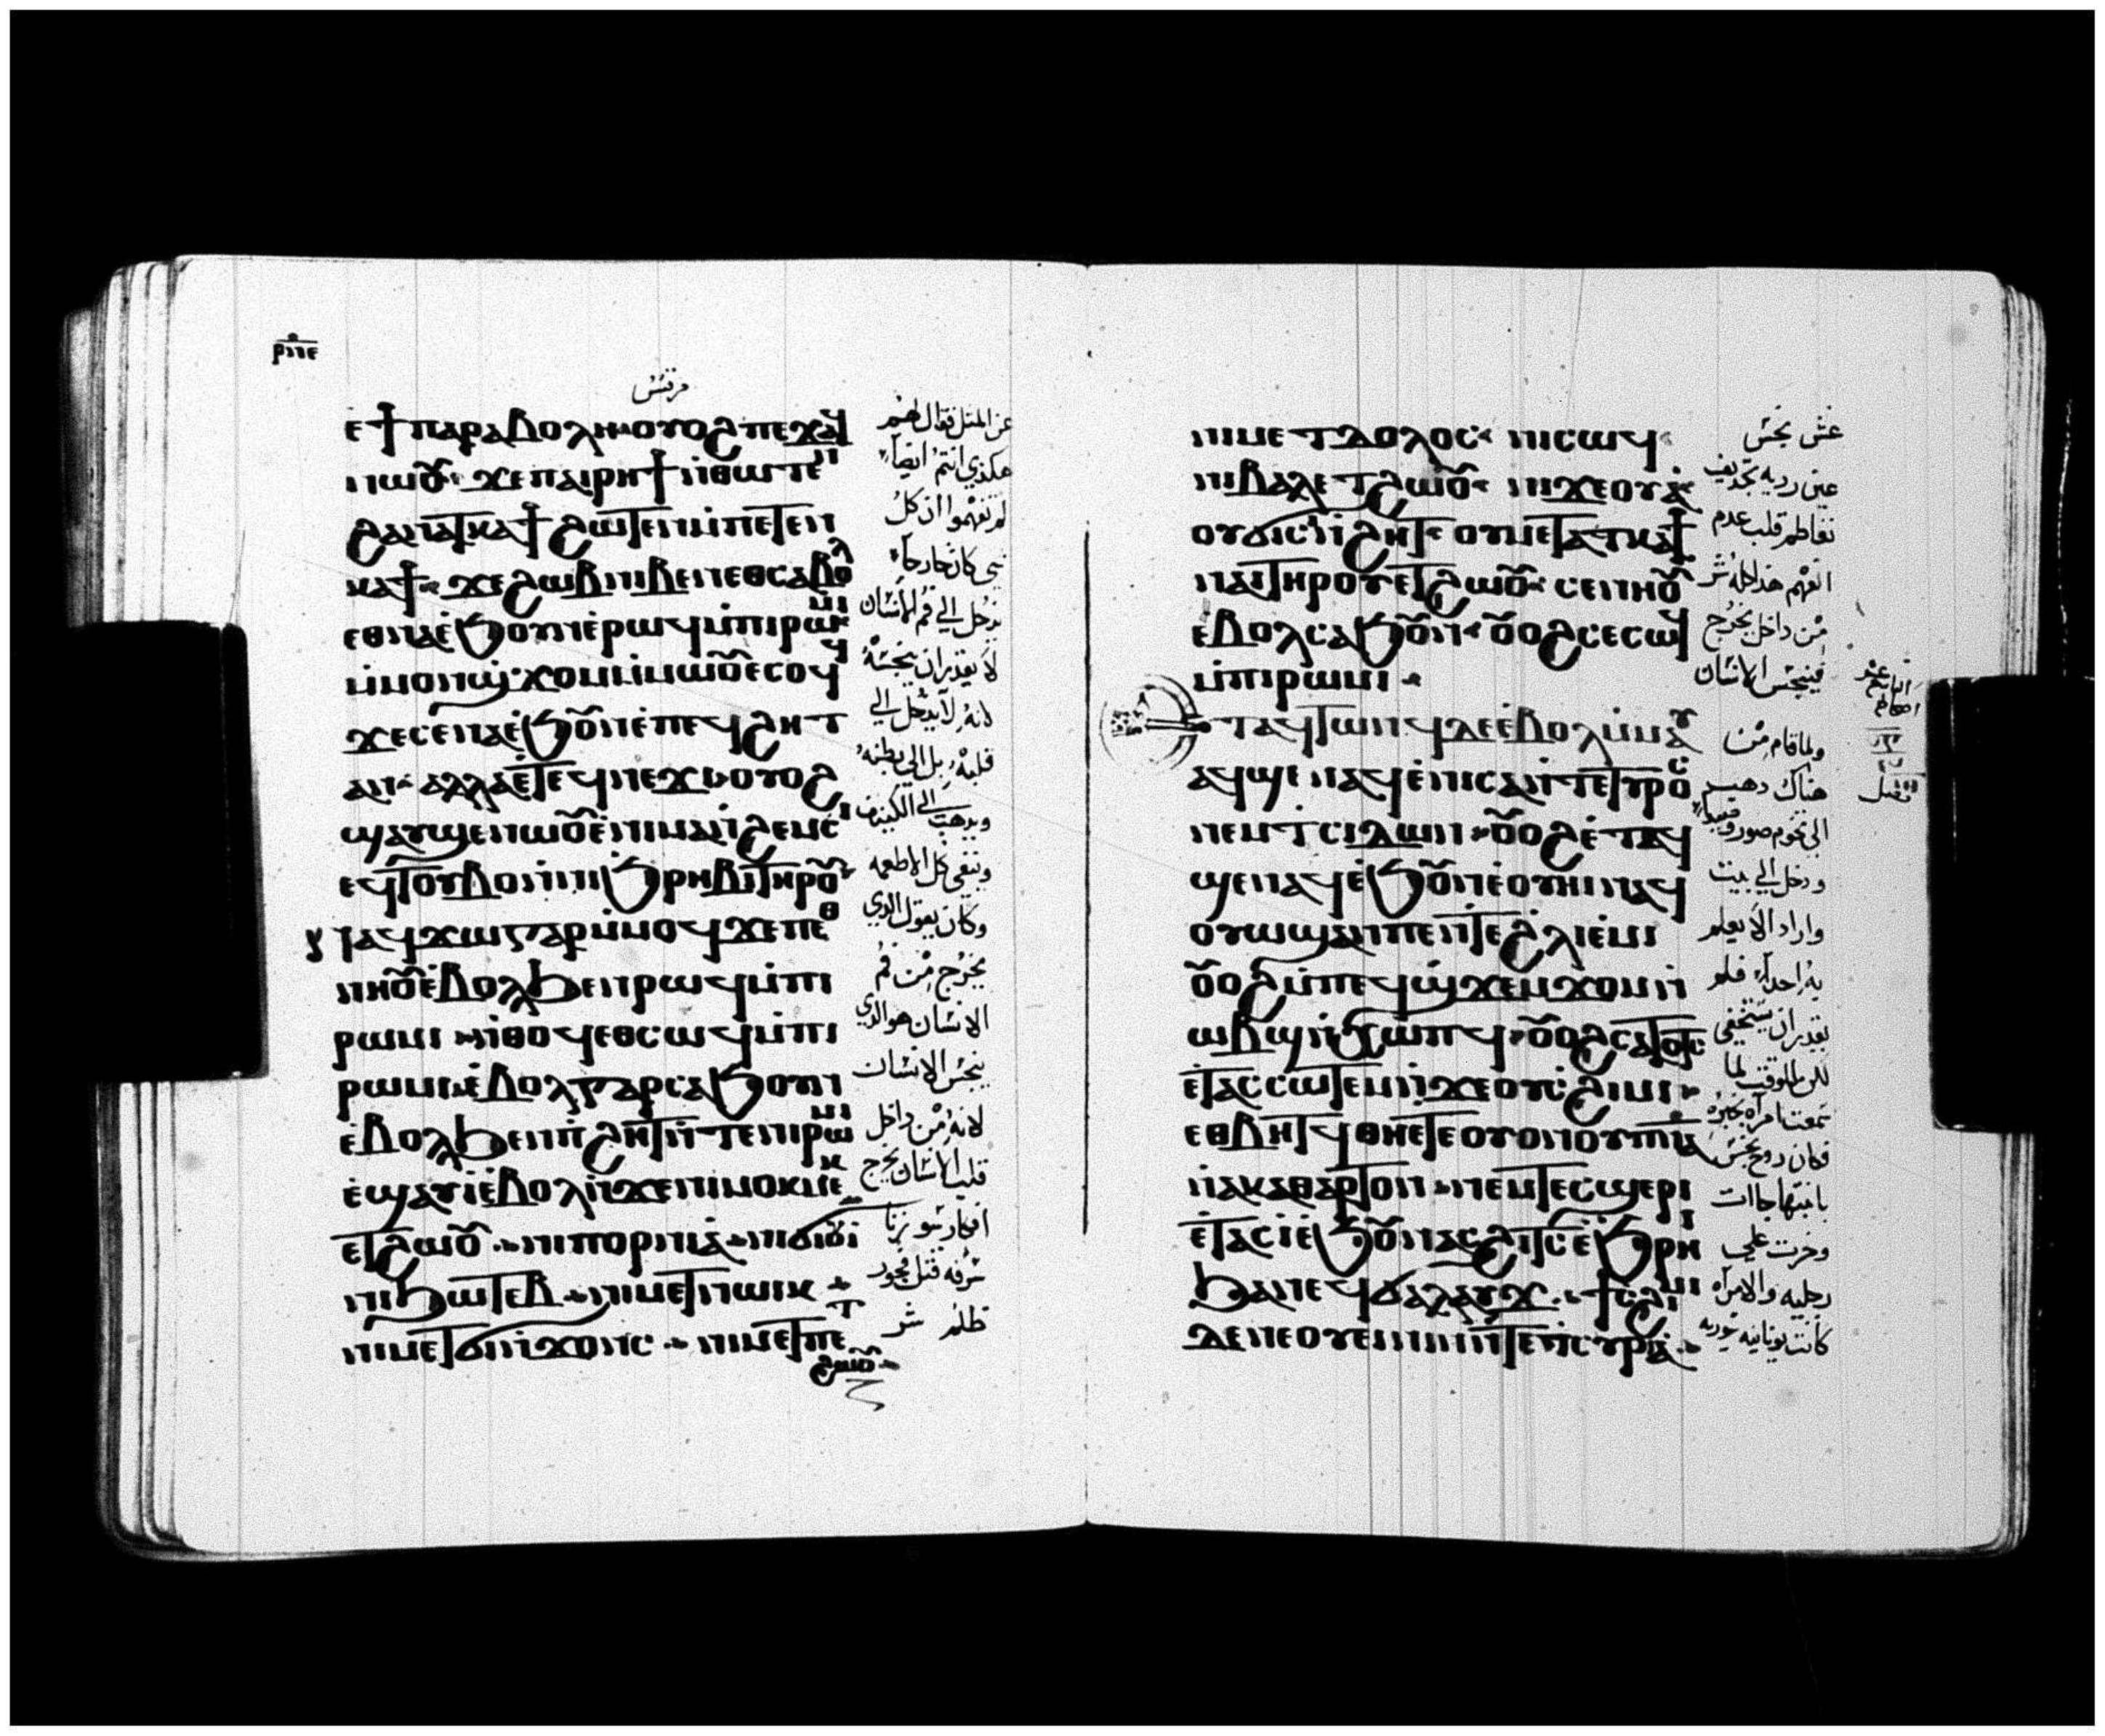 ⲣⲛⲉ
مرقس
ⲉϯⲡⲁⲣⲁⲃⲟⲗⲏ ⲟⲩⲟϩ ⲡⲉϫⲁϥ
ⲛⲱⲟⲩ ϫⲉ ⲡⲁⲓⲣⲏϯ ⲛ̀ⲑⲱⲧⲉⲛ
ϩⲁⲛⲁⲧⲕⲁϯ ϩⲱⲧⲉⲛ ⲙ̀ⲡⲉⲧⲉⲛ
ⲕⲁϯ ϫⲉ ϩⲱⲃ ⲛⲓⲃⲉⲛ ⲉⲑⲥⲁⲃⲟⲗ
ⲉⲑⲛⲁ ⲉ̀ϧⲟⲩⲛ ⲉ̀ⲣⲱϥ ⲙ̀ⲡⲓⲣⲱⲙⲓ
ⲙ̀ⲙⲟⲛ ϣϫⲟⲙ ⲙ̀ⲙⲱⲟⲩ ⲉⲥⲟϥϥ
ϫⲉ ⲥⲉⲛⲁ ⲉ̀ϧⲟⲩⲛ ⲉ̀ⲡⲉϥϩⲏⲧ
ⲁⲛ ⲁⲗⲗⲁ ⲉ̀ⲧⲉϥⲛⲉϫⲓ ⲟⲩⲟϩ
ϣⲁⲩϣⲉⲛⲱⲟⲩ ⲉ̀ⲛⲓⲙⲁⲛ̀ϩⲉⲙⲥⲓ
ⲉϥⲧⲟⲩⲃⲟ ⲛ̀ⲛⲓϧⲣⲏⲃⲓ ⲧⲏⲣⲟⲩ
ⲛⲁϥϫⲱ ⲅⲁⲣ ⲙ̀ⲙⲟϥ ϫⲉ ⲡⲉⲑ
ⲛⲏⲟⲩ ⲉ̀ⲃⲟⲗ ϧⲉⲛ ⲣⲱϥ ⲙ̀ⲡⲓ
ⲣⲱⲙⲓ ⲛ̀ⲑⲟϥ ⲉⲑⲥⲱϥ ⲙ̀ⲡⲓ
ⲣⲱⲙⲓ ⲉ̀ⲃⲟⲗ ⲅⲁⲣ ⲥⲁϧⲟⲩⲛ
ⲉ̀ⲃⲟⲗ ϧⲉⲛ ⲡ̀ϩⲏⲧ ⲛ̀ⲧⲉ ⲛⲓⲣⲱⲙⲓ
ⲉ̀ϣⲁⲩⲓ̀ ⲉ̀ⲃⲟⲗ ⲛ̀ϫⲉ ⲛⲓⲙⲟⲕⲙⲉⲕ
ⲉⲧϩⲱⲟⲩ ⲛⲓⲡⲟⲣⲛⲓⲁ̀ ⲛⲓϭⲓⲟⲩⲓ̀
ⲛⲓϧⲱⲧⲉⲃ ⲛⲓⲙⲉⲧⲛⲱⲓⲕ
ⲛⲓⲙⲉⲧϭⲓⲛ̀ϫⲟⲛⲥ ⲛⲓⲙⲉⲧⲡⲉⲧ
ϩⲱⲟⲩ
عن المثل فقال لهم
هكذي انتم ايضا
لم تفهموا ان كل
شي كان خارجا
يدخل الي فم الانسان
لا يقدر ان ينجسه
لانه لا يدخل الي
قلبه بل الي بطنه
ويذهب الي الكنيف
وينقي كل الاطعمه
وكان يقول الدي
يخرج من فم
الانسان هو الدي
ينجس الانسان
لانه من داخل
قلب الانسان يخرج
افكار سو زنا
سرقه قتل فجور
ظلم شر
ⲛⲓⲙⲉⲧⲇⲟⲗⲟⲥ ⲛⲓⲥⲱϥ
ⲛⲓⲃⲁⲗ ⲉⲧϩⲱⲟⲩ ⲛⲓϫⲉⲟⲩⲁ̀
ⲟⲩϭⲓⲥⲓ ⲛ̀ϩⲏⲧ ⲟⲩⲙⲉⲧⲁⲧⲕⲁϯ
ⲛⲁⲓ ⲧⲏⲣⲟⲩ ⲉⲧϩⲱⲟⲩ ⲥⲉⲛⲏⲟⲩ
ⲉ̀ⲃⲟⲗ ⲥⲁϧⲟⲩⲛ ⲟⲩⲟϩ ⲥⲉⲥⲱϥ
ⲙ̀ⲡⲓⲣⲱⲙⲓ
ⲉⲧⲁϥⲧⲱⲛϥ ⲇⲉ ⲉ̀ⲃⲟⲗ ⲙ̀ⲙⲁⲩ
ⲁϥϣⲉⲛⲁϥ ⲉ̀ⲛⲓⲥⲁ ⲛ̀ⲧⲉ ⲧⲩⲣⲟⲥ
ⲛⲉⲙ ⲧⲥⲓⲇⲱⲛ ⲟⲩⲟϩ ⲉ̀ⲧⲁϥ
ϣⲉⲛⲁϥ ⲉ̀ϧⲟⲩⲛ ⲉ̀ⲟⲩⲏⲓ ⲛⲁϥ
ⲟⲩⲱϣ ⲁⲛ ⲡⲉ ⲛ̀ⲧⲉ ϩⲗⲓ ⲉ̀ⲙⲓ
ⲟⲩⲟϩ ⲙ̀ⲡⲉϥϣ̀ϫⲉⲙϫⲟⲙ ⲛ̀
ⲱⲃϣ ⲛ̀ϫⲱⲡϥ ⲟⲩⲟϩ ⲥⲁⲧⲟⲧⲥ
ⲉ̀ⲧⲁⲥⲥⲱⲧⲉⲙ ⲛ̀ϫⲉ ⲟⲩⲥϩⲓⲙⲓ
ⲉⲑⲃⲏⲧϥ ⲑⲏ ⲉⲧⲉ ⲟⲩⲟⲛ ⲟⲩⲡ̅ⲛ̅ⲁ̅
ⲛ̀ⲁⲕⲁⲑⲁⲣⲧⲟⲛ ⲛⲉⲙ ⲧⲉⲥϣⲉⲣⲓ
ⲉ̀ⲧⲁⲥⲓ̀ ⲉ̀ϧⲟⲩⲛ ⲁⲥϩⲓⲧⲥ ⲉ̀ϧⲣⲏⲓ
ϧⲁ ⲛⲉϥϭⲁⲗⲁⲩϫ ϯⲥϩⲓⲙⲓ
ⲇⲉ ⲛⲉ ⲟⲩⲉⲓⲛⲓⲛ ⲛ̀ⲧⲉ ⲡ̀ⲥⲩⲣⲓⲁ̀
غش نجس
عين رديه تجديف
تعاظم قلب عدم
الفهم هذا كله شر
من داخل يخرج
فينجس الانسان
ولما قام من
هناك دهب
الي تخوم صور وصيدا
ودخل الي بيت
واراد الا يعلم
به احدا فلم
يقدر ان يستخفي
للوقت لما
سمعت امراه بخبره
كان روح نجس
بابنتها جاات
وخرت علي
رجليه والامراه
كانت يونانيه سوريه